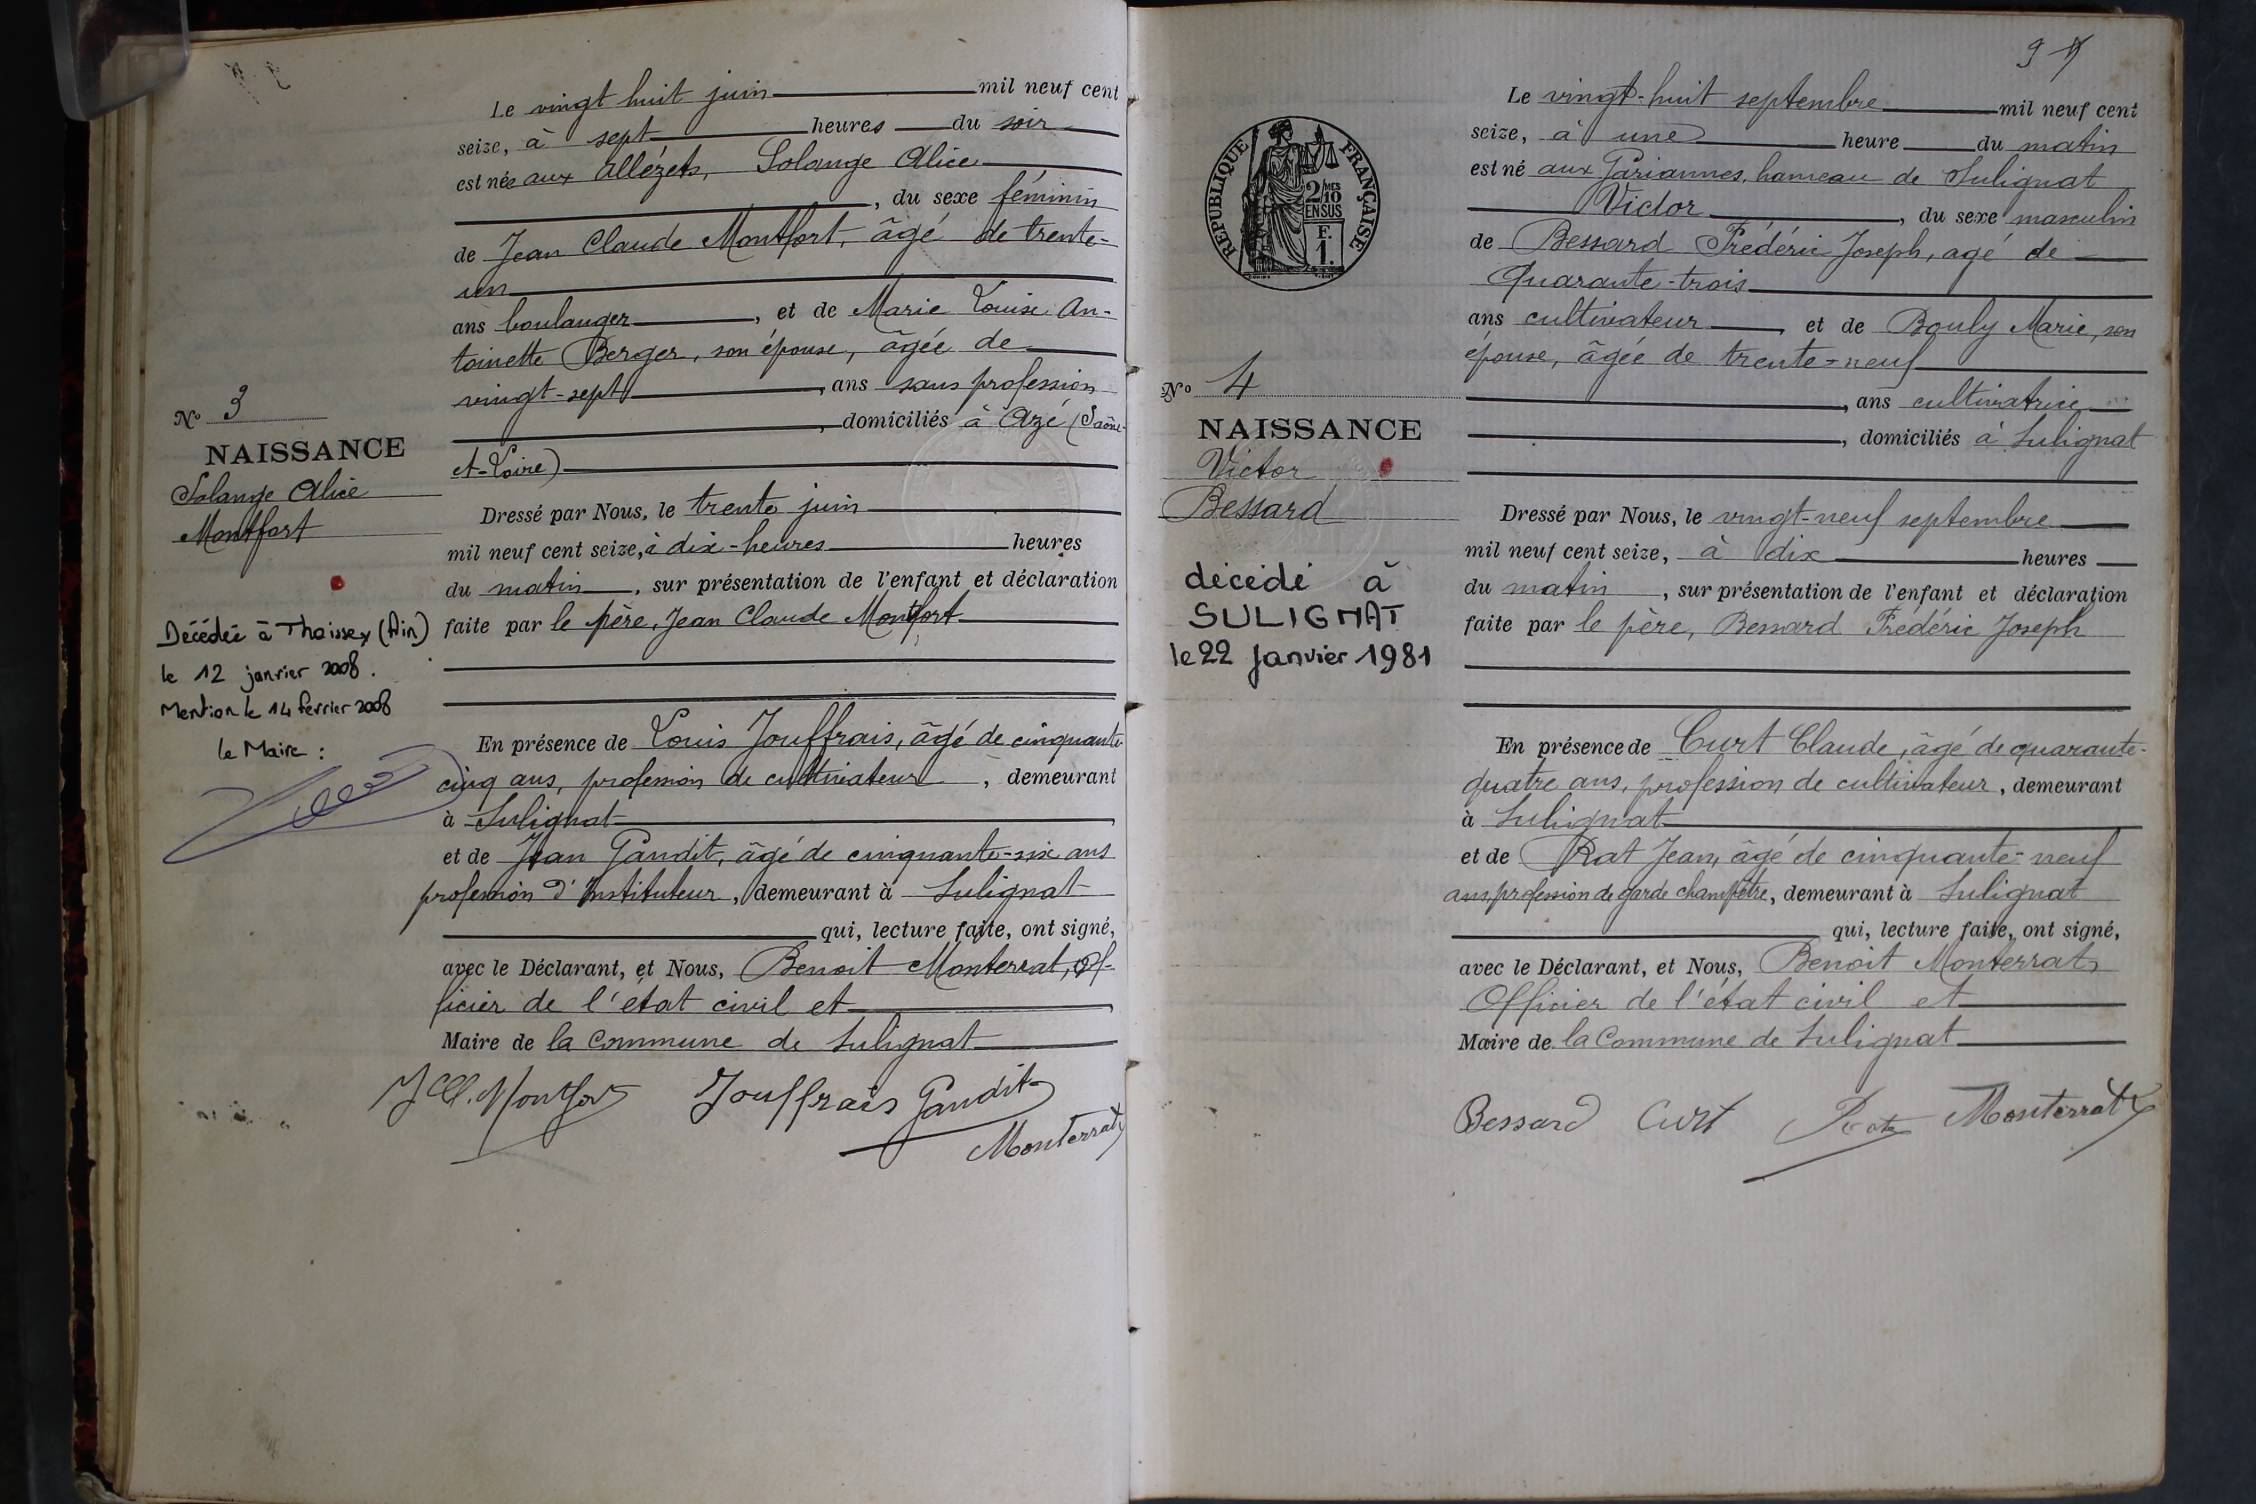 Le vingt huit juin mil neuf cent
seize, à sept heures du soir
est née aux Allézets, Solange Alice
, du sexe féminin
de Jean Claude Montfort, âgé de trente-
un
ans boulanger, et de Marie Louise An-
toinette Berger, son épouse, âgée de
vingt-sept, ans sans profession
, domiciliés à Azé (Saône-
et-Loire)
Dressé par Nous, le trente juin
mil neuf cent seize, à dix-heures heures
du matin, sur présentation de l'enfant et déclaration
faite par le père, Jean Claude Montfort
En présence de Louis Jouffrais, âgé de cinquante
cinq ans, profession de cultivateur, demeurant
à Sulignat
et de Jean Gaudit, âgé de cinquante-six ans
profession d'Instituteur, demeurant à Sulignat
qui, lecture faite, ont signé,
avec le Déclarant, et Nous, Benoit Monterrat, Of-
ficier de l'état civil et
Maire de la Commune de Sulignat
J Cl. Montfort Jouffrais Gaudit
Monterrat
N° 3
NAISSANCE
Solange Alice
Montfort
Décédée à Thoissey (Ain)
le 12 janvier 2008.
Mention le 14 février 2008
le Maire :
9
Le vingt-huit septembre mil neuf cent
seize, à une heure du matin
est né aux Pariannes, hameau de Sulignat
Victor, du sexe masculin
de Bessard Frédéric Joseph, agé de
Quarante-trois
ans cultivateur, et de Bouly Marie, son
épouse, âgée de trente-neuf
, ans cultivatrice
, domiciliés à Sulignat
Dressé par Nous, le vingt-neuf septembre
mil neuf cent seize, à dix heures
du matin, sur présentation de l'enfant et déclaration
faite par le père, Bessard Frédéric Joseph
En présence de Curt Claude, âgé de quarante-
quatre ans, profession de cultivateur, demeurant
à Sulignat
et de Rat Jean, âgé de cinquante-neuf
ans, profession de garde champêtre, demeurant à Sulignat
qui, lecture faite, ont signé,
avec le Déclarant, et Nous, Benoit Monterrat,
Officier de l'état civil et
Maire de la Commune de Sulignat
Bessard Curt Rat Monterrat
RÉPUBLIQUE FRANÇAISE
2/10 MES
EN SUS
F.
1.
N° 4
NAISSANCE
Victor
Bessard
décédé à
SULIGNAT
le 22 Janvier 1981